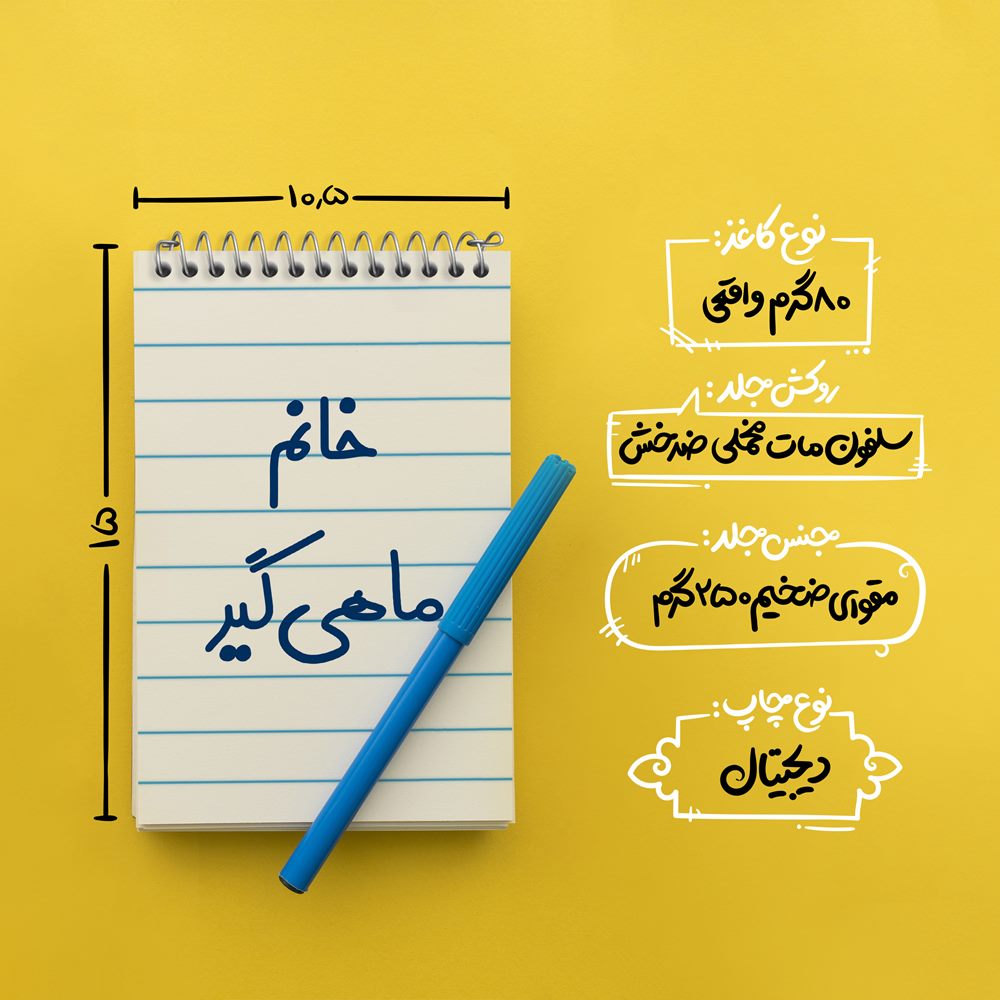 ۱۰٫۵
۱۵
خانم
ماهی گیر
نوع کاغذ:
۸۰گرم واقعی
روکش جلد:
سلفون مات مخملی ضدخش
جنس جلد:
مقوای ضخیم ۲۵۰گرم
نوع چاپ:
دیجیتال